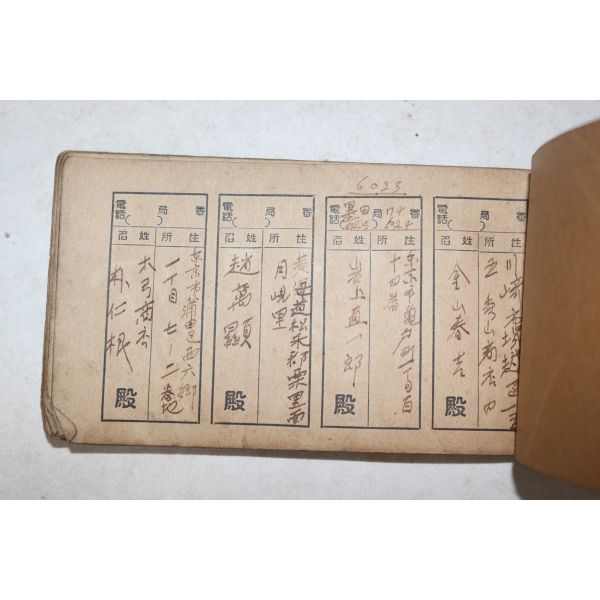 6023
電話( )局 番
住所
姓名
金山春吉
殿
電話(墨田)局 番
74
住所
姓名
東京市亀戸町一丁目百
十四番
岩上直一郎
殿
電話( )局 番
住所
姓名
黄海道松禾郡栗里面
月峴里
趙萬顯
殿
電話( )局 番
住所
姓名
東京市蒲田区西六郷
一丁目七ノ二番地
大弓商店
朴仁根
殿